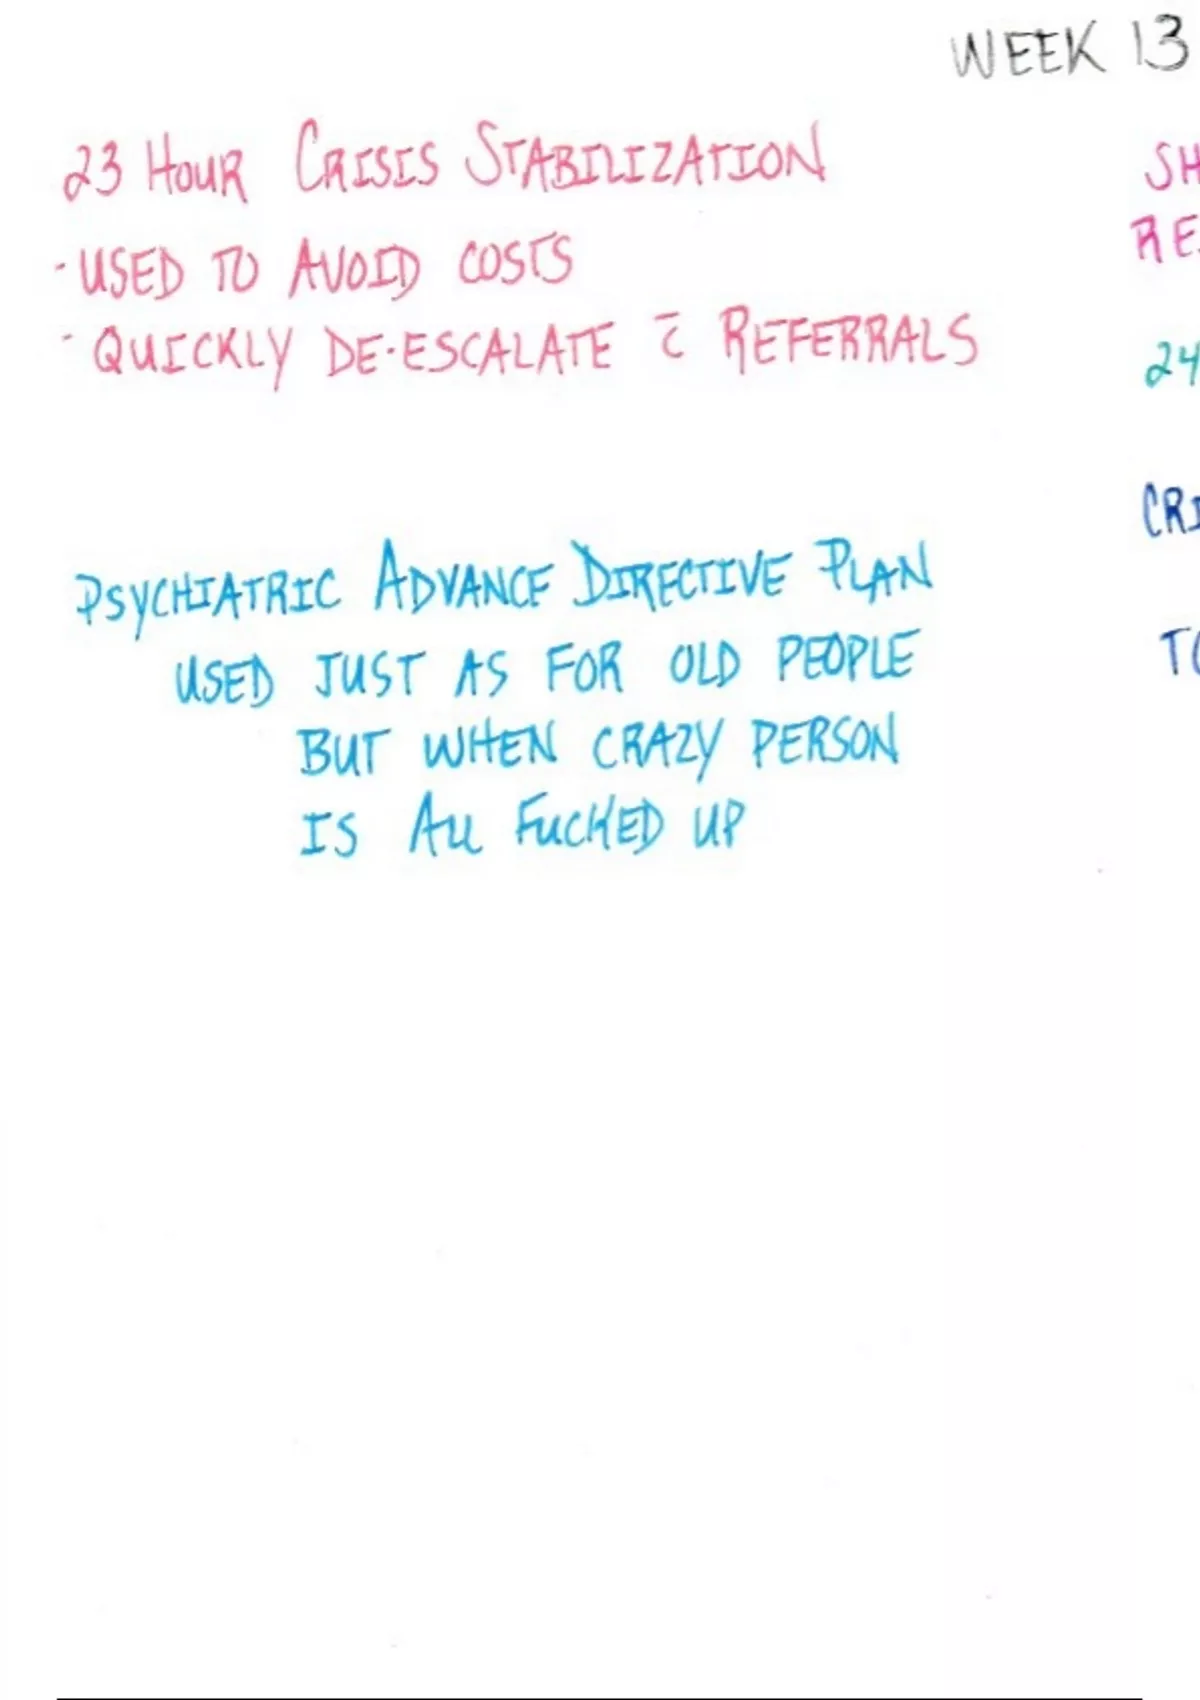 WEEK 13
23 HOUR CRISIS STABILIZATION
- USED TO AVOID COSTS
- QUICKLY DE-ESCALATE c̄ REFERRALS
PSYCHIATRIC ADVANCE DIRECTIVE PLAN
USED JUST AS FOR OLD PEOPLE
BUT WHEN CRAZY PERSON
IS All FUCKED UP
SH
RE
24
CRI
TO